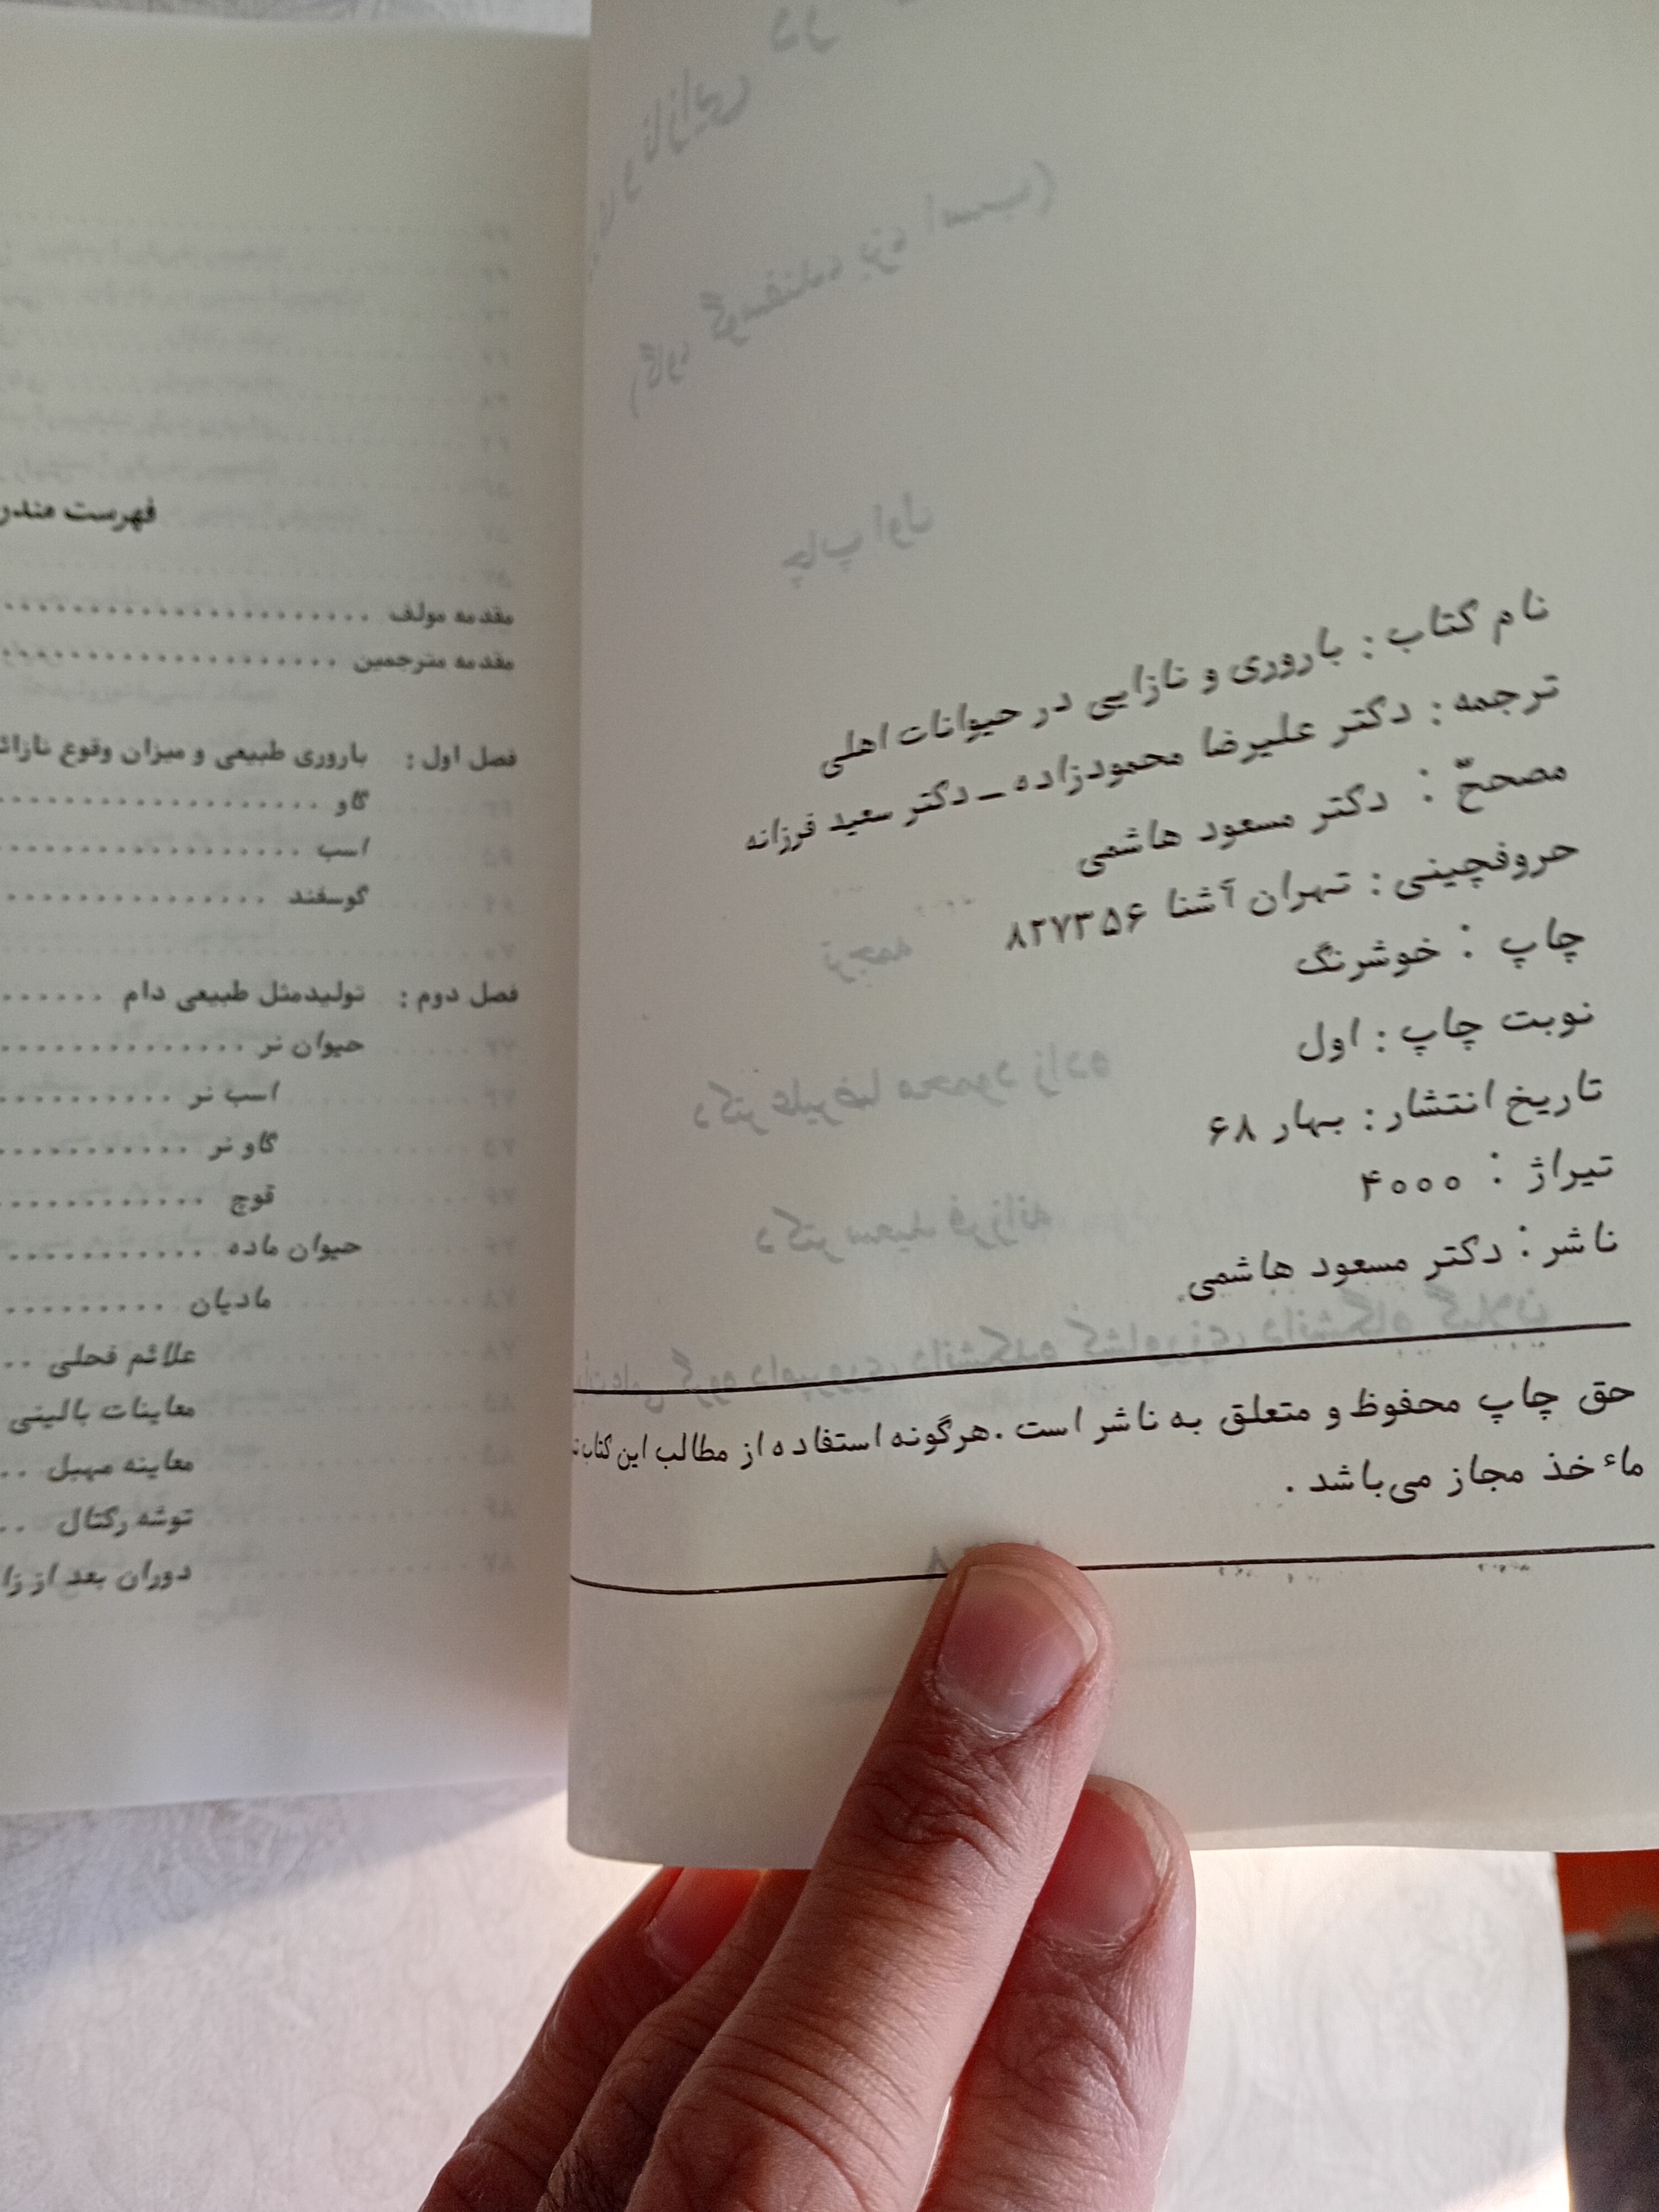 نام کتاب : باروری و نازایی در حیوانات اهلی
ترجمه : دکتر علیرضا محمودزاده ـ دکتر سعید فرزانه
مصححّ : دکتر مسعود هاشمی
حروفچینی : تهران آشنا ۸۲۷۳۵۶
چاپ : خوشرنگ
نوبت چاپ : اول
تاریخ انتشار : بهار ۶۸
تیراژ : ۴۰۰۰
ناشر : دکتر مسعود هاشمی
حق چاپ محفوظ و متعلق به ناشر است . هرگونه استفاده از مطالب این کتاب
ماءخذ مجاز می‌باشد .
فهرست
مقدمه مولف
مقدمه مترجمین
فصل اول : باروری طبیعی و میزان وقوع
گاو
اسب
گوسفند
فصل دوم : تولیدمثل طبیعی دام
حیوان نر
اسب نر
گاو نر
قوچ
حیوان ماده
مادیان
علائم فحلی
معاینات بالینی
معاینه مهبل
توشه رکتال
دوران بعد از